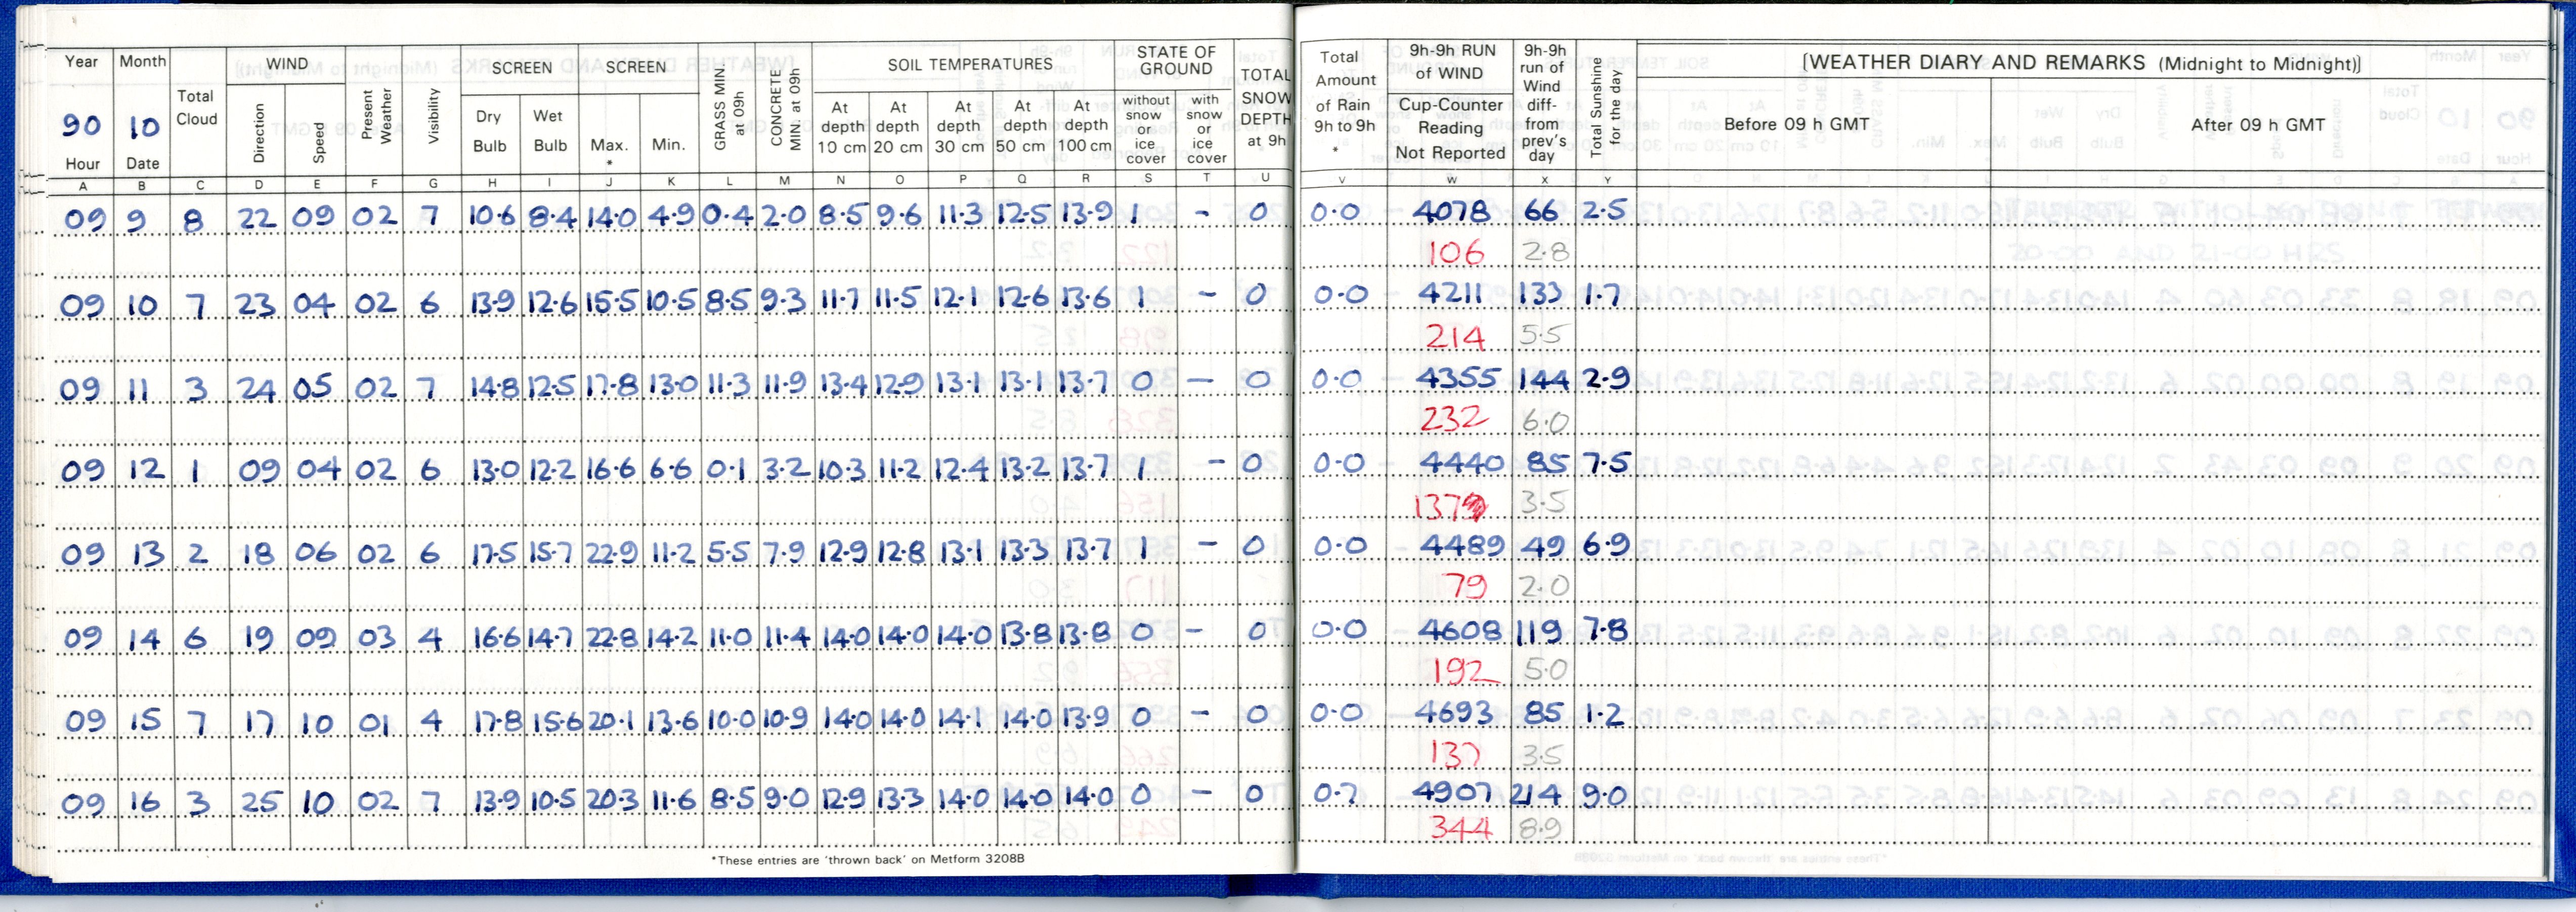 Year Month Total Cloud WIND Direction Speed Present Weather Visibility SCREEN Dry Bulb Wet Bulb SCREEN Max. * Min. GRASS MIN. at 09h CONCRETE MIN. at 09h SOIL TEMPERATURES At depth 10 cm At depth 20 cm At depth 30 cm At depth 50 cm At depth 100 cm STATE OF GROUND without snow or ice cover with snow or ice cover TOTAL SNOW DEPTH at 9h Total Amount of Rain 9h to 9h * 9h-9h RUN of WIND Cup-Counter Reading Not Reported 9h-9h run of Wind diff- from prev's day Total Sunshine for the day [WEATHER DIARY AND REMARKS (Midnight to Midnight)] Before 09 h GMT After 09 h GMT
90 10
Hour Date
A B C D E F G H I J K L M N O P Q R S T U V W X Y
09 9 8 22 09 02 7 10.6 8.4 14.0 4.9 0.4 2.0 8.5 9.6 11.3 12.5 13.9 1 - 0 0.0 4078 66 2.5
106 2.8
09 10 7 23 04 02 6 13.9 12.6 15.5 10.5 8.5 9.3 11.7 11.5 12.1 12.6 13.6 1 - 0 0.0 4211 133 1.7
214 5.5
09 11 3 24 05 02 7 14.8 12.5 17.8 13.0 11.3 11.9 13.4 12.9 13.1 13.1 13.7 0 - 0 0.0 4355 144 2.9
232 6.0
09 12 1 09 04 02 6 13.0 12.2 16.6 6.6 0.1 3.2 10.3 11.2 12.4 13.2 13.7 1 - 0 0.0 4440 85 7.5
137 3.5
09 13 2 18 06 02 6 17.5 15.7 22.9 11.2 5.5 7.9 12.9 12.8 13.1 13.3 13.7 1 - 0 0.0 4489 49 6.9
79 2.0
09 14 6 19 09 03 4 16.6 14.7 22.8 14.2 11.0 11.4 14.0 14.0 14.0 13.8 13.8 0 - 0 0.0 4608 119 7.8
192 5.0
09 15 7 17 10 01 4 17.8 15.6 20.1 13.6 10.0 10.9 14.0 14.0 14.1 14.0 13.9 0 - 0 0.0 4693 85 1.2
137 3.5
09 16 3 25 10 02 7 13.9 10.5 20.3 11.6 8.5 9.0 12.9 13.3 14.0 14.0 14.0 0 - 0 0.7 4907 214 9.0
344 8.9
*These entries are 'thrown back' on Metform 3208B